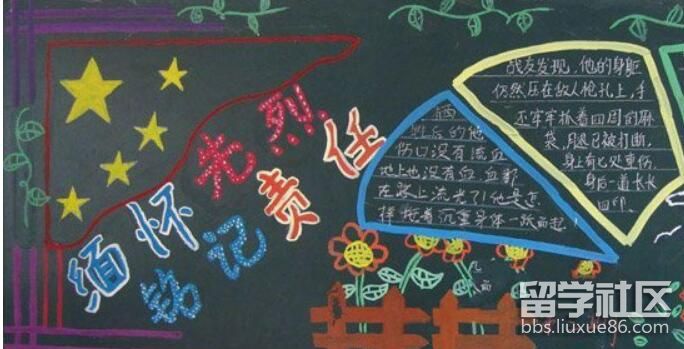 缅怀先烈
铭记责任
牺
牲后的他
伤口没有流血
地上也没有血，血都
在路上流光了！他是怎
样拖着沉重身体一跃而起
战友发现，他的身躯
仍然压在敌人枪孔上，手
还牢牢抓着四周的麻
袋，腿已被打断，
身上有七处重伤，
身后一道长长
血印。
留学社区
bbs.liuxue86.com